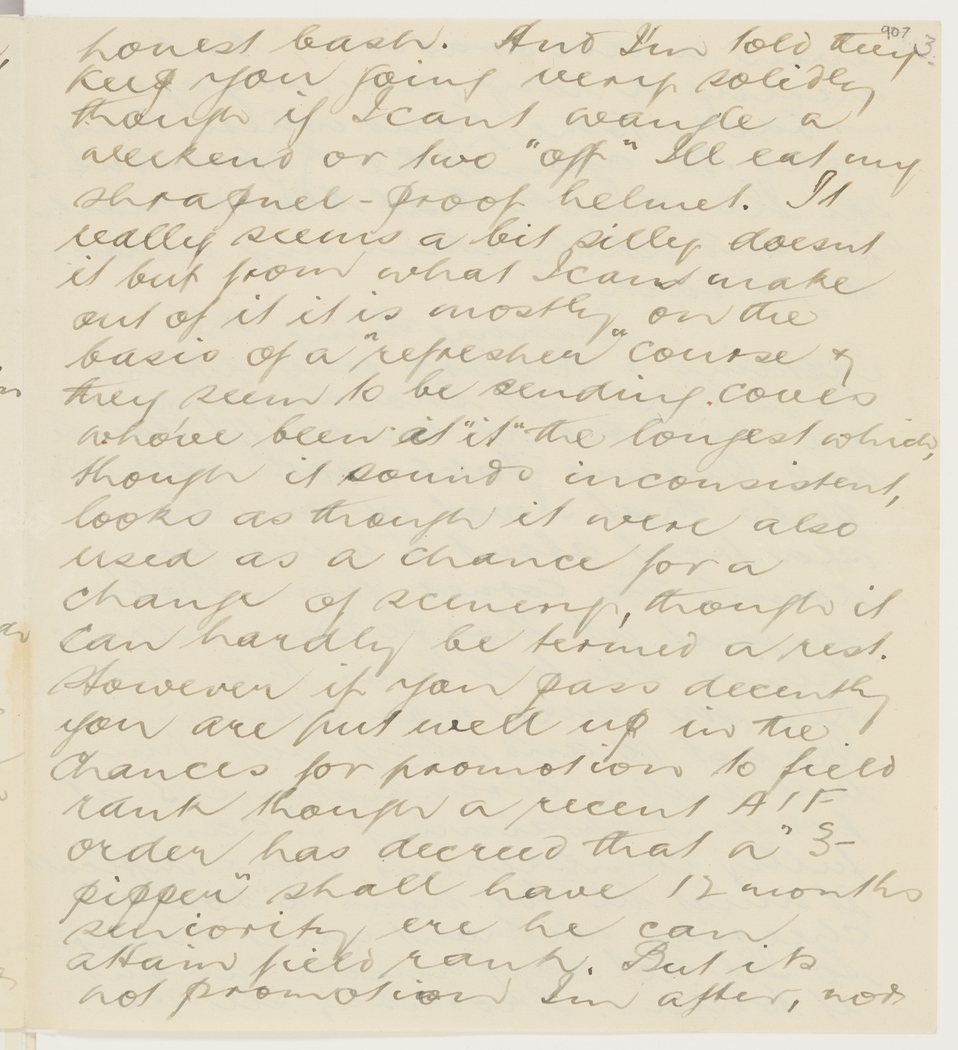 907 3.
honest bash. And I'm told they
keep you going very solidly
though if I cant wangle a
weekend or two "off" Ill eat my
shrapnel-proof helmet. It
really seems a bit silly doesnt
it but from what I can make
out of it it is mostly on the
basis of a "refresher" course &
they seem to be sending coves
who've been at "it" the longest which,
though it sounds inconsistent,
looks as though it were also
used as a chance for a
change of scenery, though it
can hardly be termed a rest.
However if you pass decently
you are put well up in the
chances for promotion to field
rank though a recent AIF
order has decreed that a "3-
pipper" shall have 12 months
seniority ere he can
attain field rank. But its
not promotion Im after, nor